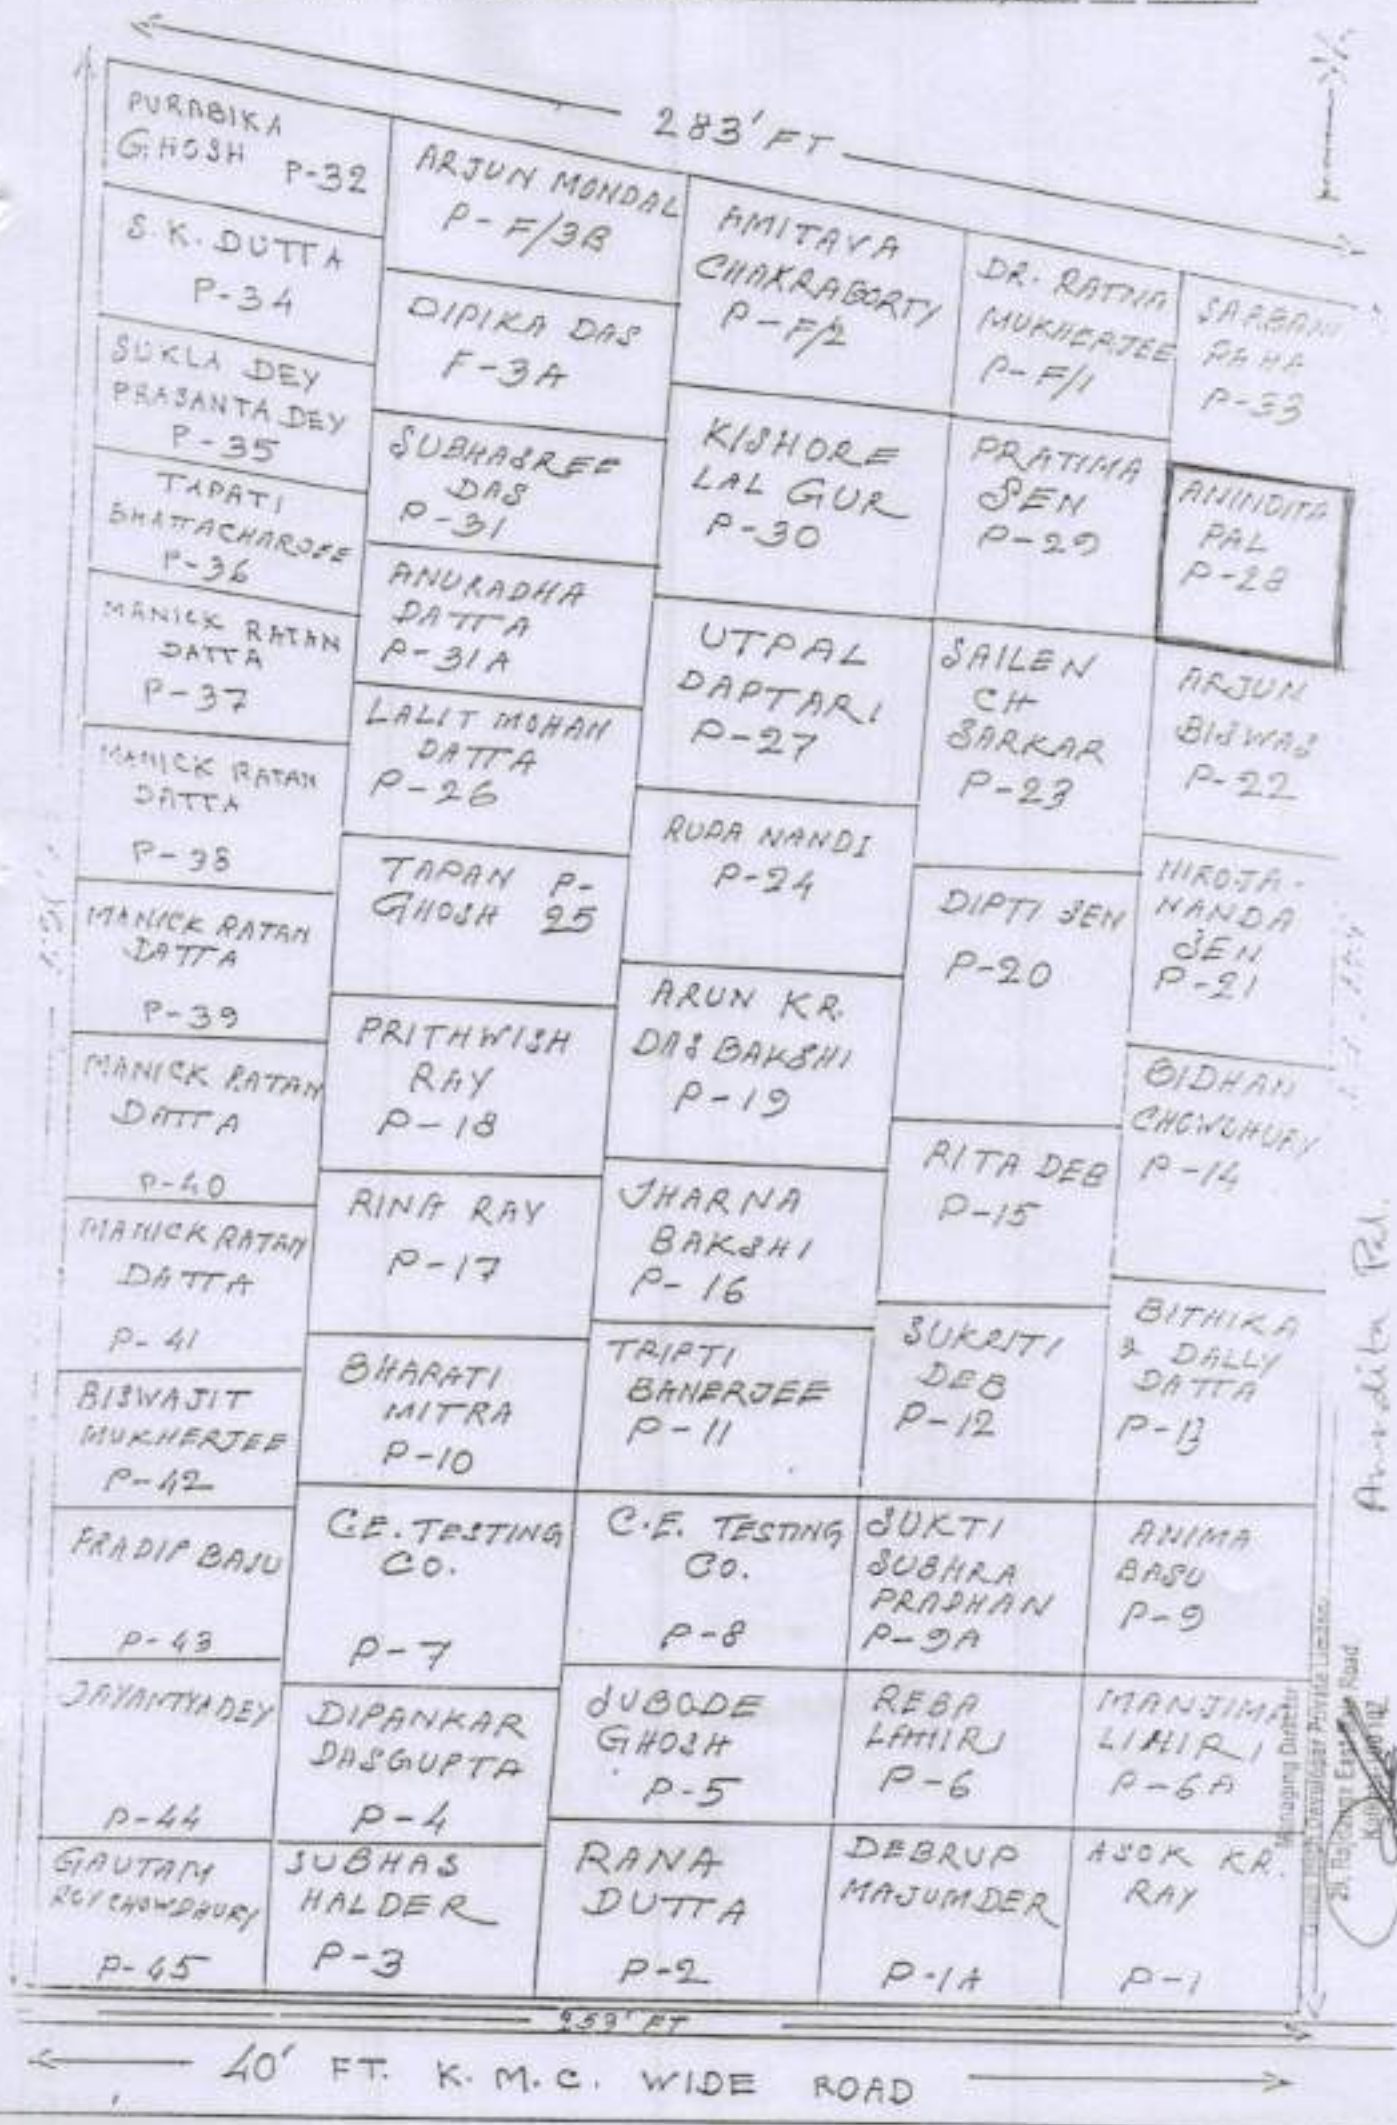 283' FT
PURABIKA
GHOSH P-32
S.K. DUTTA
P-34
SUKLA DEY
PRASANTA DEY
P-35
TAPATI
BHATTACHARJEE
P-36
MANICK RATAN
DATTA
P-37
MANICK RATAN
DATTA
P-38
MANICK RATAN
DATTA
P-39
MANICK RATAN
DATTA
P-40
MANICK RATAN
DATTA
P-41
BISWAJIT
MUKHERJEE
P-42
PRADIP BASU
P-43
JAYANTYA DEY
P-44
GAUTAM
ROYCHOWDHURY
P-45
ARJUN MONDAL
P-F/3B
DIPIKA DAS
F-3A
SUBHASREE
DAS
P-31
ANURADHA
DATTA
P-31A
LALIT MOHAN
DATTA
P-26
TAPAN P-
GHOSH 25
PRITHWISH
RAY
P-18
RINA RAY
P-17
BHARATI
MITRA
P-10
C.E. TESTING
CO.
P-7
DIPANKAR
DASGUPTA
P-4
SUBHAS
HALDER
P-3
AMITAVA
CHAKRABORTY
P-F/2
KISHORE
LAL GUR
P-30
UTPAL
DAPTARI
P-27
RUPA NANDI
P-24
ARUN KR.
DAS BAKSHI
P-19
JHARNA
BAKSHI
P-16
TRIPTI
BANERJEE
P-11
C.E. TESTING
CO.
P-8
SUBODE
GHOSH
P-5
RANA
DUTTA
P-2
DR. RATNA
MUKHERJEE
P-F/1
PRATIMA
SEN
P-29
SAILEN
CH
SARKAR
P-23
DIPTI SEN
P-20
RITA DEB
P-15
SUKRITI
DEB
P-12
SUKTI
SUBHRA
PRADHAN
P-9A
REBA
LAHIRI
P-6
DEBRUP
MAJUMDER
P-1A
SARBANI
RAHA
P-33
ANINDITA
PAL
P-28
ARJUN
BISWAS
P-22
NIROJA-
NANDA
SEN
P-21
BIDHAN
CHOWDHURY
P-14
BITHIKA
& DALLY
DATTA
P-13
ANIMA
BASU
P-9
MANJIMA
LIHIRI
P-6A
ASOK KR.
RAY
P-1
Anindita Pal.
Managing Director
Developer Private Limited
29, Rajdanga East Road
259' FT
40' FT. K.M.C. WIDE ROAD